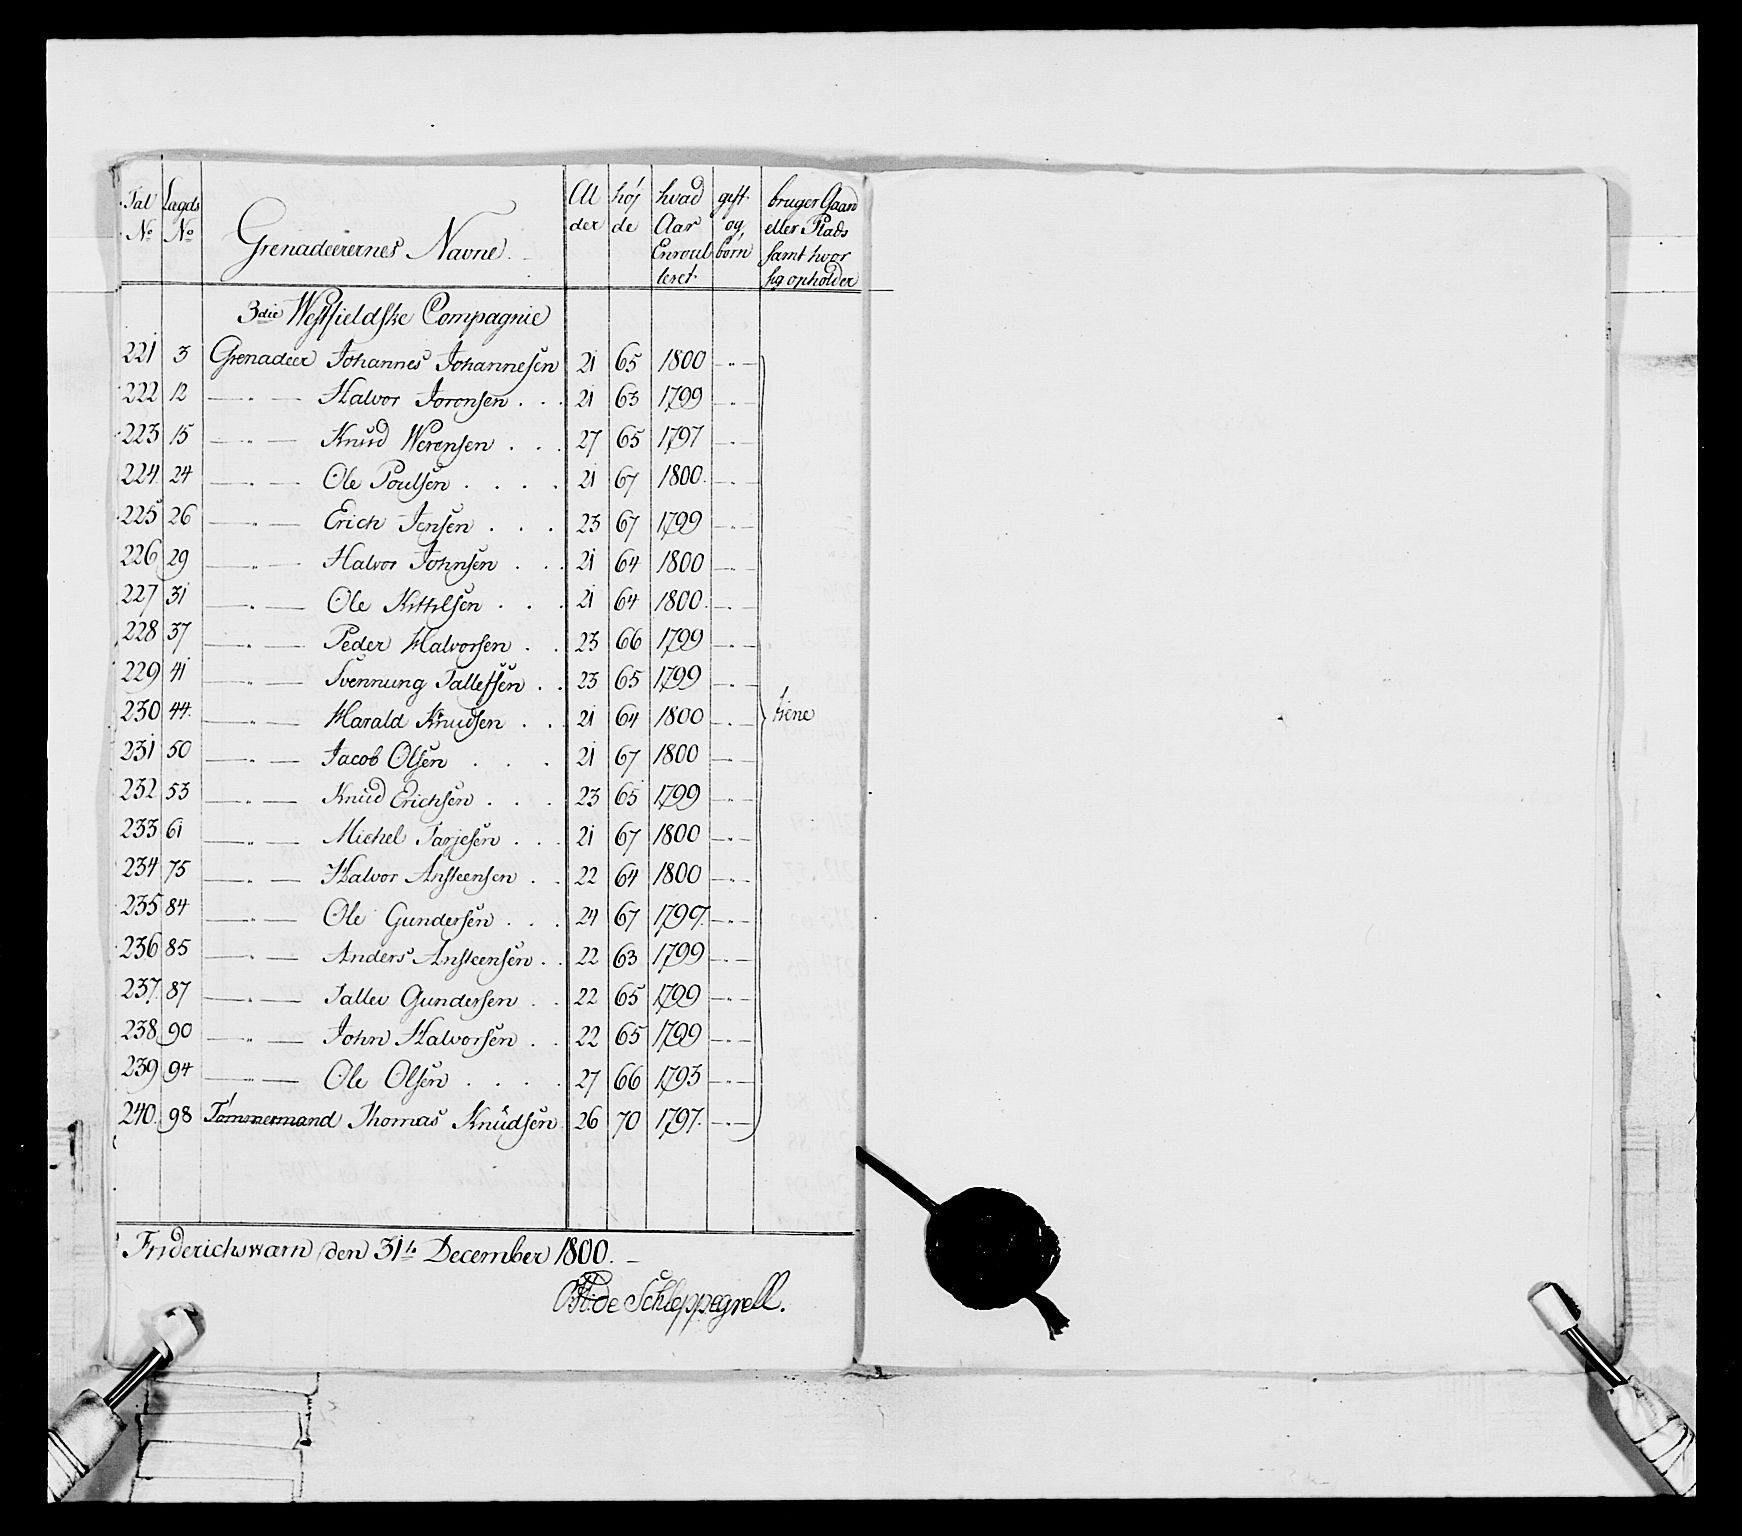 Tal No Lagds No Grenadeerernes Navne. Alder høj de hvad Aar Enroulleret gift og børn bruger Gaard eller Plads samt hvor sig opholder
3die Westfieldske Compagnie
221 3 Grenadeer Johannes Johannesen 21 65 1800 — " —
222 12 — " — Halvor Joronsen . . 21 63 1799 — " —
223 15 — " — Knud Werensen . . 27 65 1797 — " —
224 24 — " — Ole Poulsen . . . . 21 67 1800. — " —
225 26 — " — Erich Jensen . . . 23 67 1799 — " —
226 29 — " — Halvor Johnsen . . 21 64 1800 — " —
227 31 — " — Ole Kittilsen . . . 21 64 1800. — " —
228 37 — " — Peder Halvorsen . . 23 66 1799 — " —
229 41 — " — Svennung Tallefsen . . 23 65 1799 — " —
230 44. — " — Harald Knudsen . . 21 64 1800 — " — tiene
231 50 — " — Jacob Olsen . . . 21 67 1800 — " —
232 53 — " — Knud Erichsen . . . 23 65 1799 — " —
233 61 — " — Michel Tarjesen . . . 21 67 1800 — " —
234 75 — " — Halvor Ansteensen . . 22 64 1800 — " —
235 84 — " — Ole Gundersen . . . 24 67 1797. — " —
236 85 — " — Anders Ansteensen . . 22 63 1799 — " —
237. 87 — " — Tallev Gundersen . . 22 65 1799 — " —
238 90 — " — John Halvorsen . . 22 65 1799 — " —
239 94 — " — Ole Olsen . . . . 27 66 1793 — " —
240. 98 Tømmermand Thomas Knudsen 26 70 1797. — " —
Friderichswærn den 31te December 1800. —
de Schleppegrell.